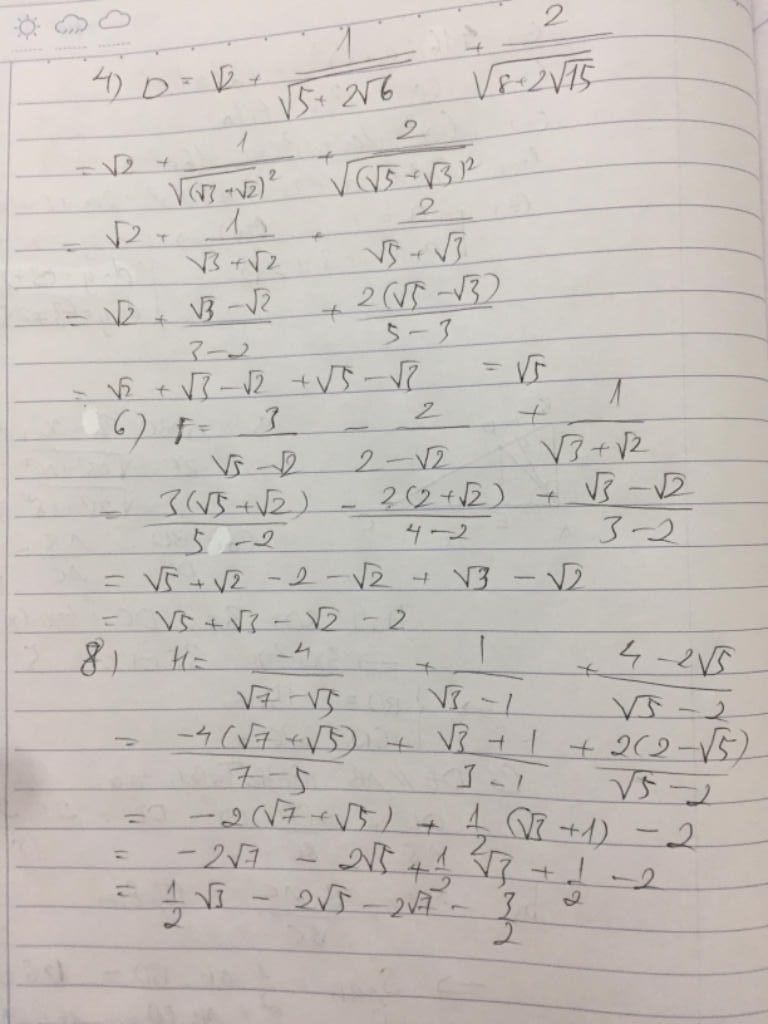 4) D = √2 + 1/√(5 + 2√6) + 2/√(8 + 2√15)
= √2 + 1/√((√3 + √2)²) + 2/√((√5 + √3)²)
= √2 + 1/(√3 + √2) + 2/(√5 + √3)
= √2 + (√3 − √2)/(3 − 2) + 2(√5 − √3)/(5 − 3)
= √2 + √3 − √2 + √5 − √3 = √5
6) F = 3/(√5 − √2) − 2/(2 − √2) + 1/(√3 + √2)
= 3(√5 + √2)/(5 − 2) − 2(2 + √2)/(4 − 2) + (√3 − √2)/(3 − 2)
= √5 + √2 − 2 − √2 + √3 − √2
= √5 + √3 − √2 − 2
8) H = −4/(√7 − √5) + 1/(√3 − 1) + (4 − 2√5)/(√5 − 2)
= −4(√7 + √5)/(7 − 5) + (√3 + 1)/(3 − 1) + 2(2 − √5)/(√5 − 2)
= −2(√7 + √5) + 1/2 (√3 + 1) − 2
= −2√7 − 2√5 + 1/2 √3 + 1/2 − 2
= 1/2 √3 − 2√5 − 2√7 − 3/2